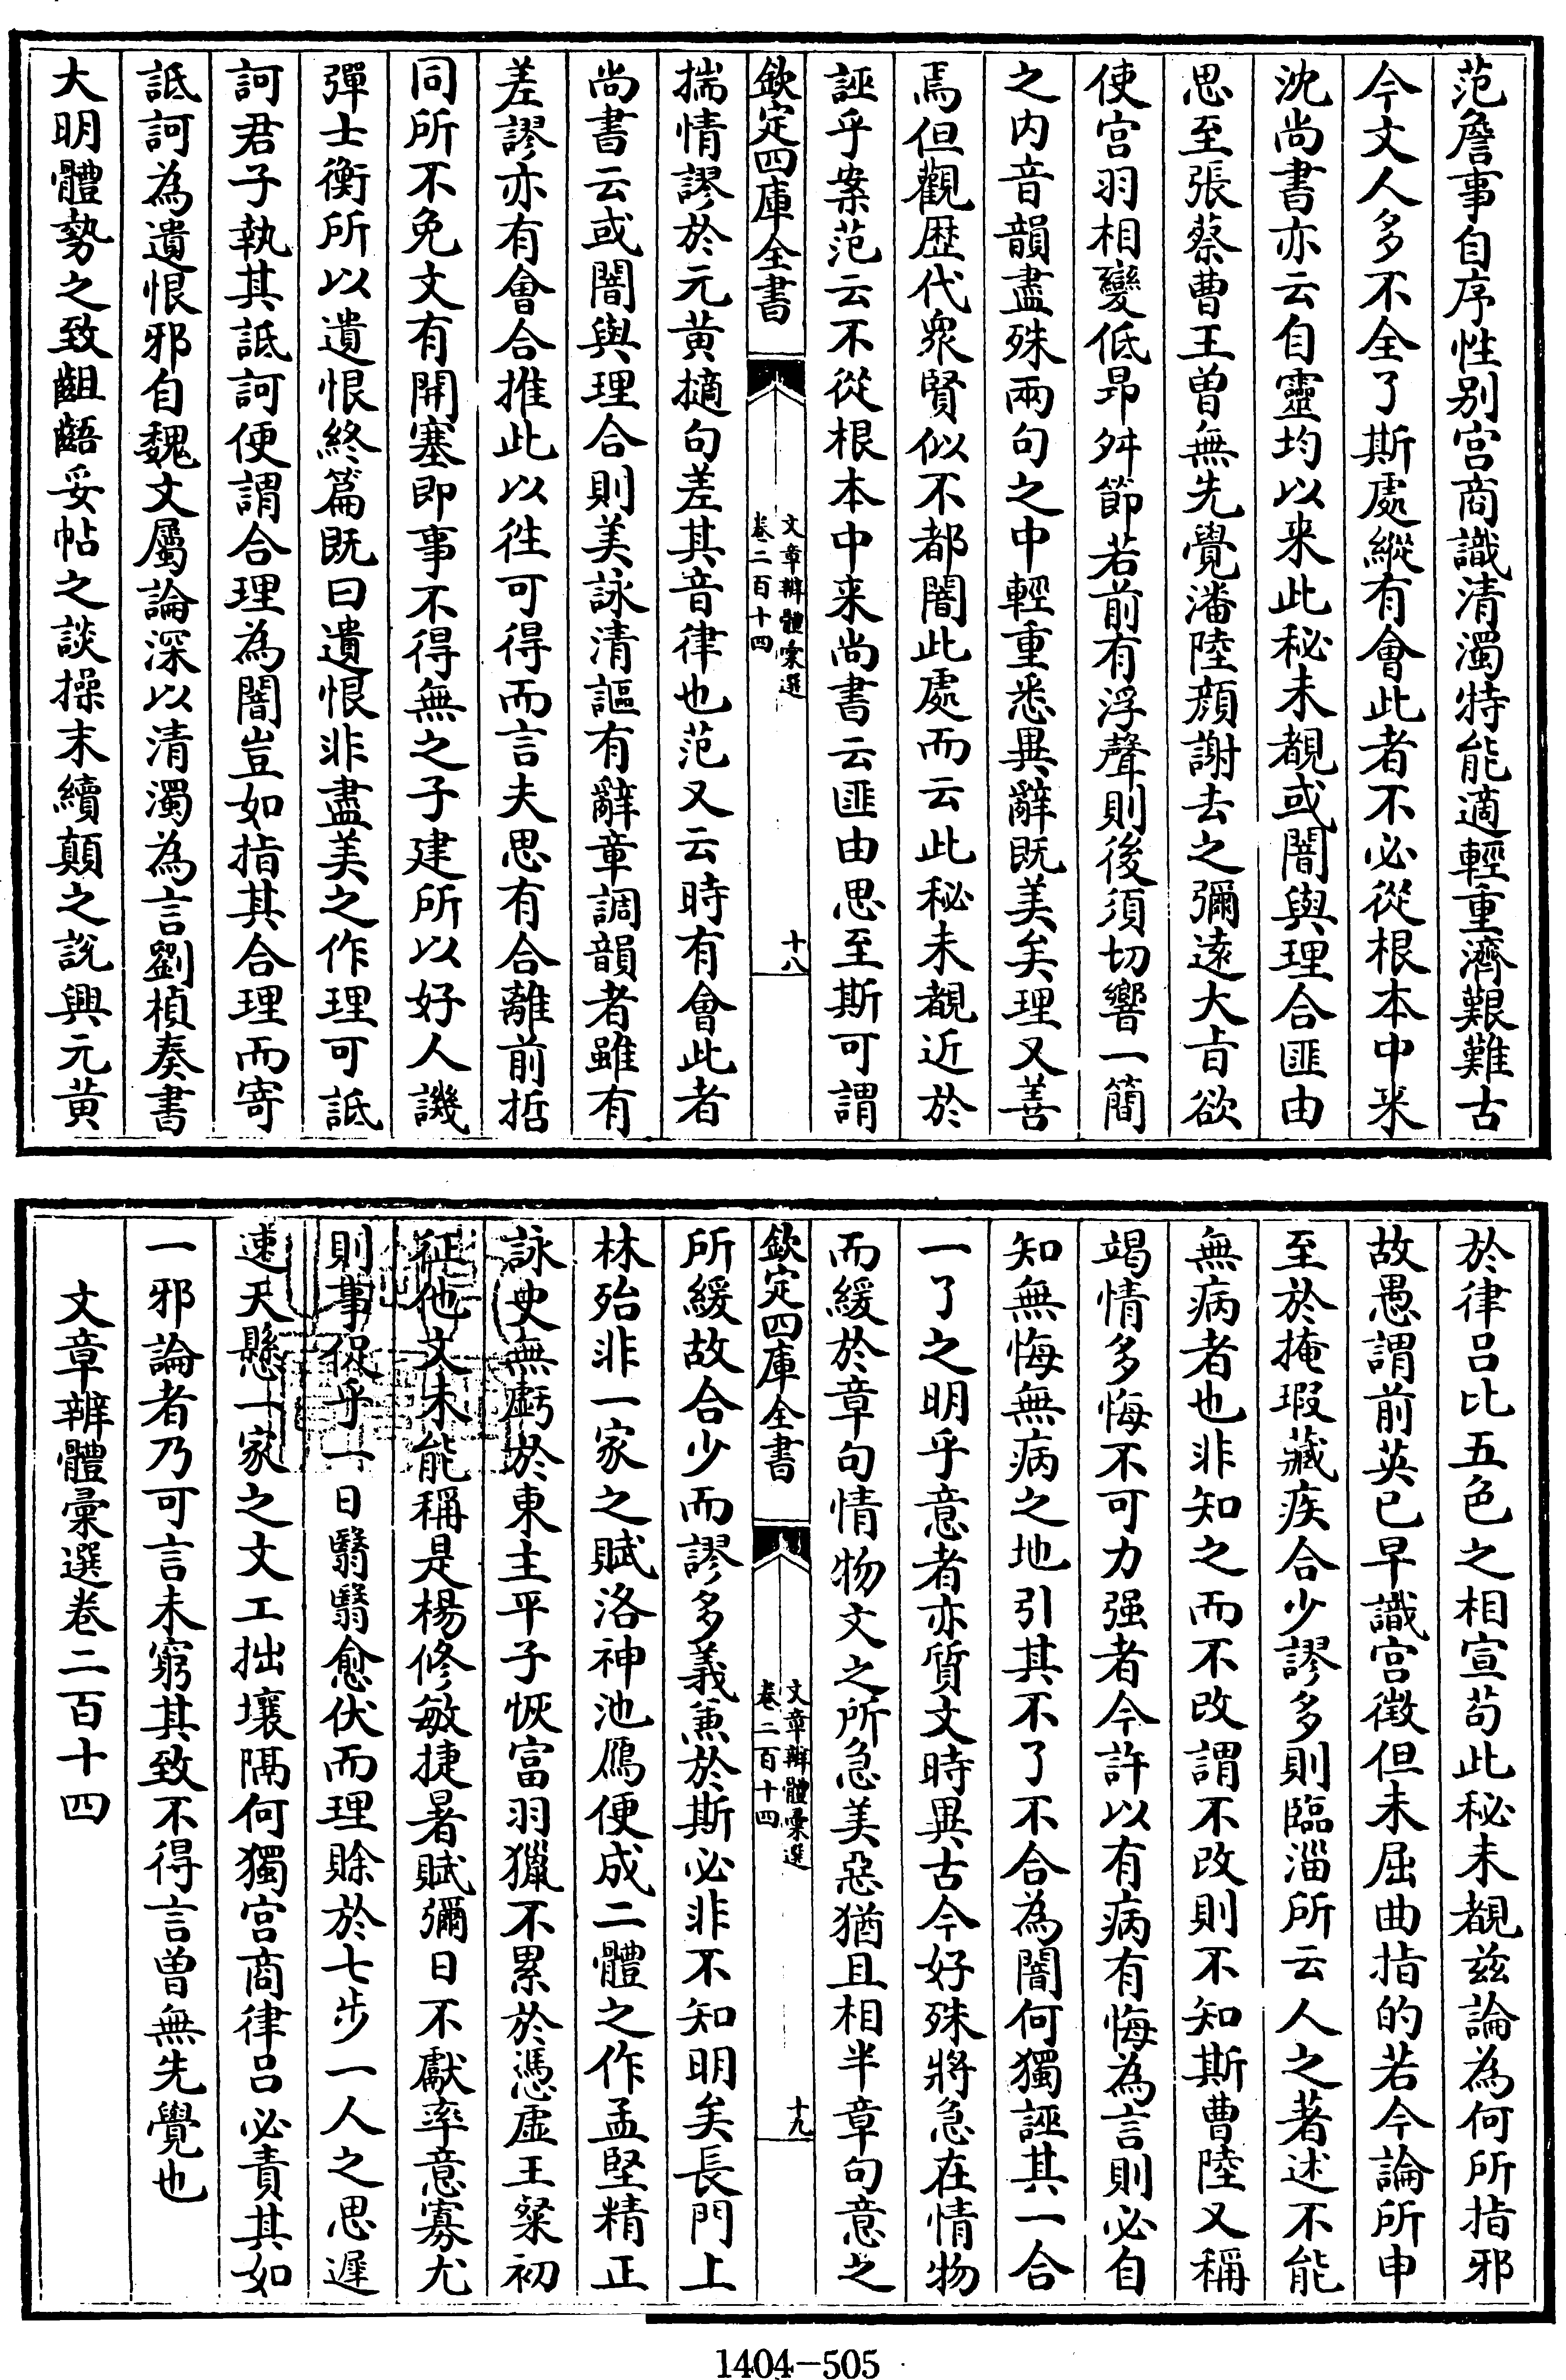 范詹事自序性别宫商識清濁特能適輕重濟艱難古
今文人多不全了斯處縱有會此者不必從根本中来
沈尚書亦云自靈均以来此秘未覩或闇與理合匪由
思至張蔡曹王曽無先覺潘陸顔謝去之彌逺大㫖欲
使宫羽相變低昂舛節若前有浮聲則後須切響一簡
之内音韻盡殊兩句之中輕重悉異辭既美矣理又善
焉但觀歴代衆賢似不都闇此處而云此秘未覩近於
誣乎案范云不從根本中来尚書云匪由思至斯可謂
欽定四庫全書
文章辨體彚選
卷二百十四
十八
揣情謬於元黄摘句差其音律也范又云時有會此者
尚書云或闇與理合則美詠清謳有辭章調韻者雖有
差謬亦有會合推此以往可得而言夫思有合離前哲
同所不免文有開塞即事不得無之子建所以好人譏
彈士衡所以遺恨終篇既曰遺恨非盡美之作理可詆
訶君子執其詆訶便謂合理為闇豈如指其合理而寄
詆訶為遺恨邪自魏文屬論深以清濁為言劉楨奏書
大明體勢之致齟齬妥帖之談操末續顛之說興元黄
於律吕比五色之相宣苟此秘未覩兹論為何所指邪
故愚謂前英已早識宫徴但未屈曲指的若今論所申
至於掩瑕藏疾合少謬多則臨淄所云人之著述不能
無病者也非知之而不改謂不改則不知斯曹陸又稱
竭情多悔不可力强者今許以有病有悔為言則必自
知無悔無病之地引其不了不合為闇何獨誣其一合
一了之明乎意者亦質文時異古今好殊將急在情物
而緩於章句情物文之所急美惡猶且相半章句意之
欽定四庫全書
文章辨體彚選
卷二百十四
十九
所緩故合少而謬多義兼於斯必非不知明矣長門上
林殆非一家之賦洛神池鴈便成二體之作孟堅精正
詠史無虧於東主平子恢富羽獵不累於憑虚王粲初
征他文未能稱是楊修敏捷暑賦彌日不獻率意寡尤
則事促乎一日翳翳愈伏而理賒於七步一人之思遲
速天懸一家之文工拙壤隔何獨宫商律吕必責其如
一邪論者乃可言未窮其致不得言曽無先覺也
文章辨體彚選卷二百十四
1404-505